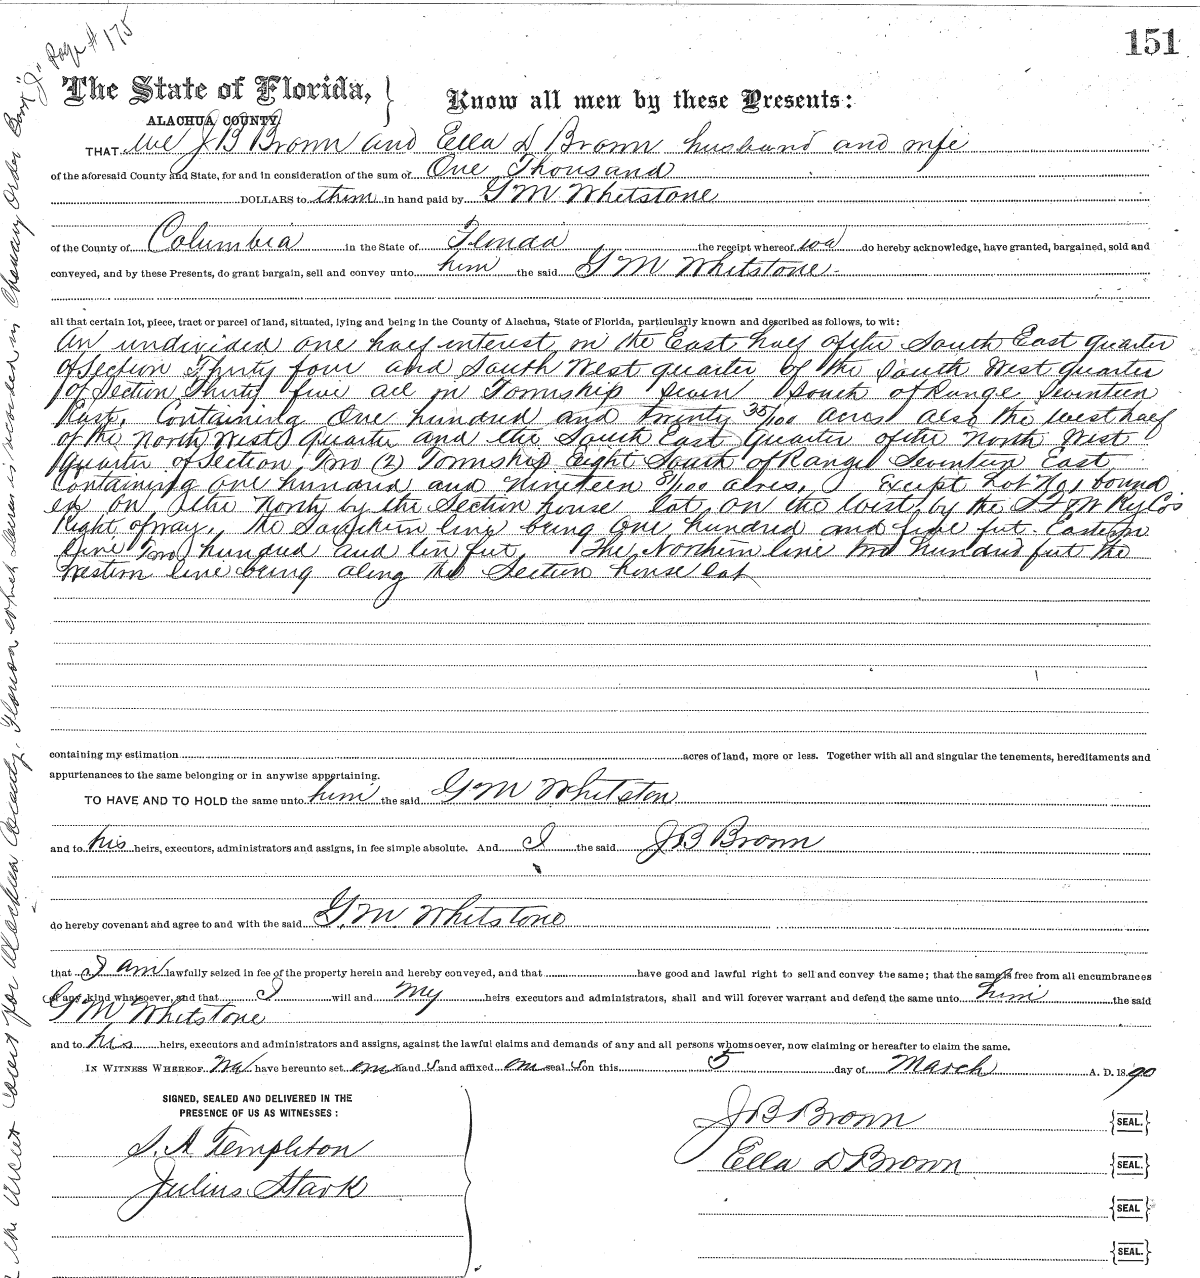 151
Page # 175
The State of Florida,
Know all men by these Presents:
ALACHUA COUNTY.
THAT We J B Brown and Ella D Brown husband and wife
of the aforesaid County and State, for and in consideration of the sum of One Thousand
DOLLARS to them in hand paid by G M Whetstone
of the County of Columbia in the State of Florida the receipt whereof do hereby acknowledge, have granted, bargained, sold and
conveyed, and by these Presents, do grant bargain, sell and convey unto him the said G M Whitstone
all that certain lot, piece, tract or parcel of land, situated, lying and being in the County of Alachua, State of Florida, particularly known and described as follows, to wit:
An undivided one half interest in the East half of the South East quarter
of Section Thirty four and South West quarter of the South West quarter
of Section Thirty five all in Township seven South of Range Seventeen
East. Containing One hundred and twenty 35/100 acres also the West half
of the North West Quarter and the South East Quarter of the North West
Quarter of Section Two (2) Township eight South of Range Seventeen East
Containing one hundred and Nineteen 81/100 acres. Except Lot No 1 bound
ed on the North by the Section house lot on the West by the Ry Co's
Right of way. The Southern line being one hundred and five feet. Eastern
line Two hundred and ten feet, The Northern line two hundred feet the
Western line being along the Section house lot
containing my estimation acres of land, more or less. Together with all and singular the tenements, hereditaments and
appurtenances to the same belonging or in anywise appertaining.
TO HAVE AND TO HOLD the same unto him the said G M Whitston
and to his heirs, executors, administrators and assigns, in fee simple absolute. And I the said J B Brown
do hereby covenant and agree to and with the said G. M. Whitstone
that I am lawfully seized in fee of the property herein and hereby conveyed, and that have good and lawful right to sell and convey the same; that the same is free from all encumbrances
of any kind whatsoever, and that I will and My heirs executors and administrators, shall and will forever warrant and defend the same unto him the said
G M Whitstone
and to his heirs, executors and administrators and assigns, against the lawful claims and demands of any and all persons whomsoever, now claiming or hereafter to claim the same.
IN WITNESS WHEREOF We have hereunto set our hand s and affixed our seal s on this 5 day of March A. D. 1890
SIGNED, SEALED AND DELIVERED IN THE
PRESENCE OF US AS WITNESSES:
J B Brown SEAL.
S. A Templeton
Ella D Brown SEAL.
Julius Stark
SEAL
SEAL.
Circuit Court for Alachua County, Florida which decree is recorded in Chancery Order Book "J"